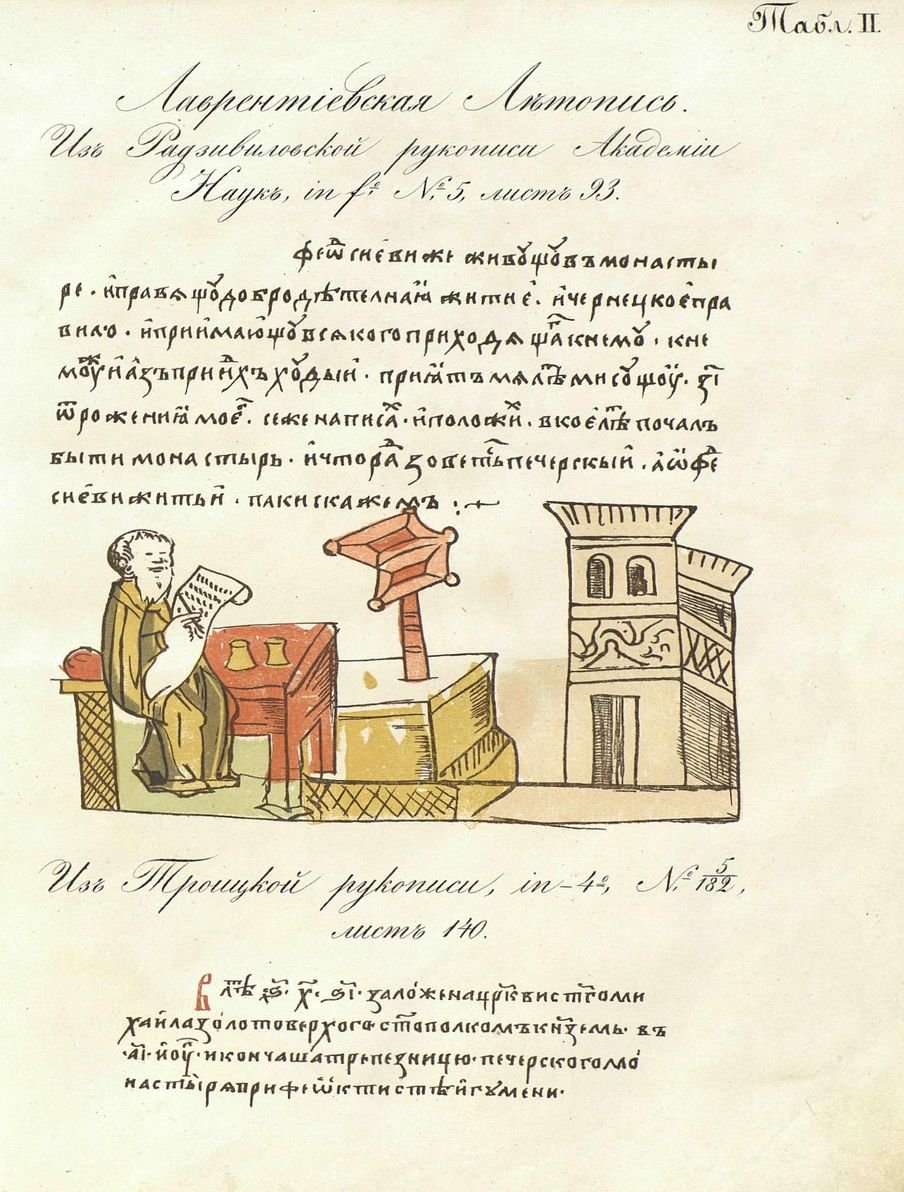 Табл. II.
Лаврентіевская Лѣтопись.
Изъ Радзивиловской рукописи Академіи
Наукъ, in fº Nº 5, листъ 93.
живꙋщꙋ въ монасты
ре · и правѧщꙋ добродѣтелнаꙗ житие · и чернецкое пра
вило · и приимающꙋ всѧкого приходѧщаг к немꙋ · к не
мꙋж и азъ приидх хꙋдыи · приꙗтъ мѧ лѣт ми сꙋщꙋ · зі
ѿ роженіꙗ моег · се же написах · и положих · в кое лѣт почалъ
быти монастырь · и что рад зоветсь печерскыи · а ѡ фед
сиеви житьи · паки скажемъ :·
Изъ Троицкой рукописи, in-4º, Nº 5/182,
листъ 140.
В лѣт ҂ѕ҃ · х҃ · ѕ҃і · заложена црк҃ви ст҃го ми
хаила золотоверхого ст҃ополкомъ кнѧземь · въ
·а҃і· и кончаша трепезницю · печерского мо
настырѧ при феѡктистѣ игꙋмени ·